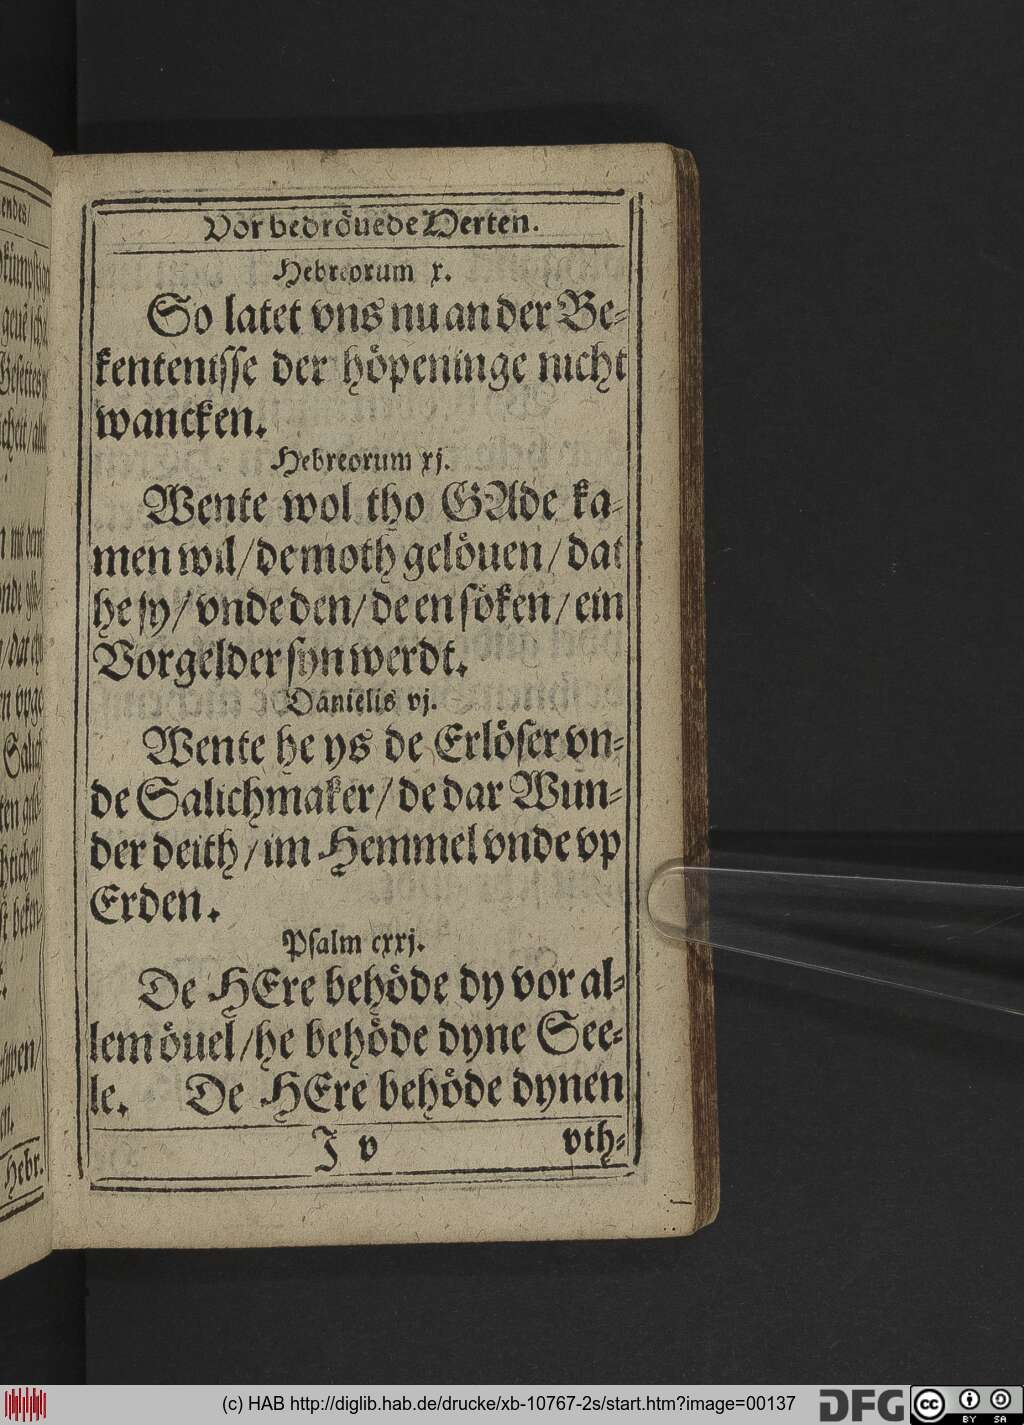 endes/
Vor bedröuede Herten.
Hebreorum x.
So latet vns nu an der Be-
kentenisse der höpeninge nicht
wancken.
Hebreorum xj.
Wente wol tho GAde ka-
men wil/ de moth gelöuen/ dat
he sy/ vnde den/ de en söken/ ein
Vorgelder syn werdt.
Danielis vj.
Wente he ys de Erlöser vn-
de Salichmaker/ de dar Wun-
der deith/ im Hemmel vnde vp
Erden.
Psalm cxxj.
De HEre behöde dy vor al-
lem öuel/ he behöde dyne See-
le. De HEre behöde dynen
J v vth-
Hebr.
(c) HAB http://diglib.hab.de/drucke/xb-10767-2s/start.htm?image=00137
DFG
cc BY SA